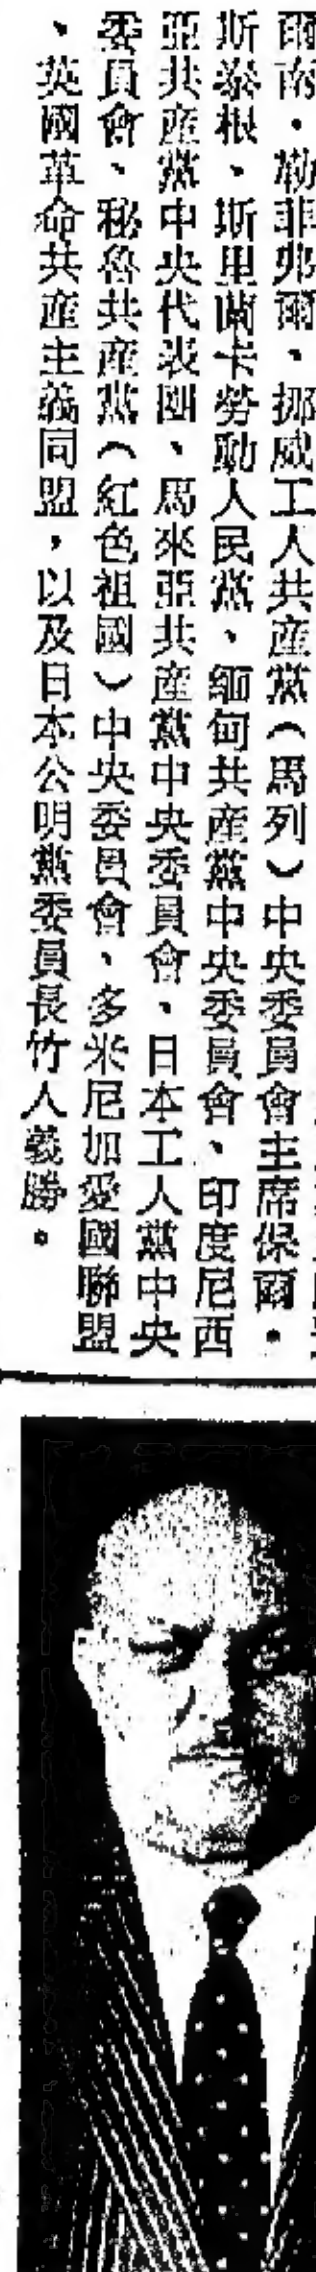 爾南·勒非弗爾、挪威工人共産黨(馬列)中央委員會主席保爾·
斯泰根、斯里蘭卡勞動人民黨、緬甸共産黨中央委員會、印度尼西
亞共産黨中央代表團、馬來亞共産黨中央委員會、日本工人黨中央
委員會、秘魯共産黨(紅色祖國)中央委員會、多米尼加愛國聯盟
、英國革命共産主義同盟,以及日本公明黨委員長竹人義勝。